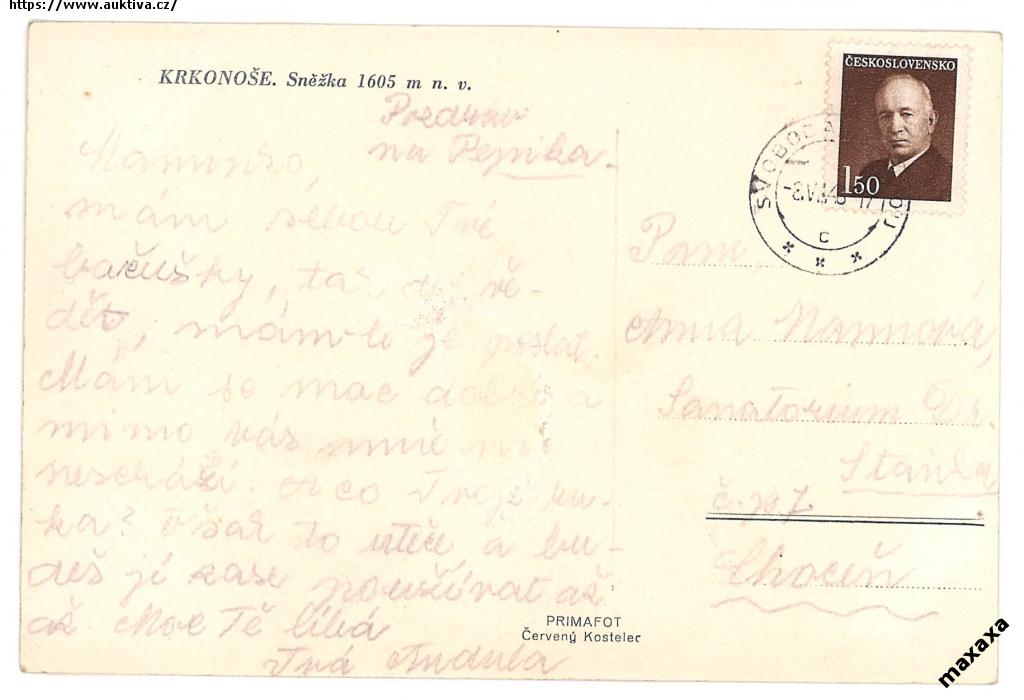 https://www.auktiva.cz/
KRKONOŠE. Sněžka 1605 m n. v.
Pozdrav
na Pepíka.
Maminko,
mám sebou Tvé
bačůšky, tak dej vě-
dět, mám-li je poslat.
Mám se moc dobře a
mimo vás mně nic
neschází. A co Tvoje ru-
ka? Však to uteče a bu-
deš jí zase používat až
až. Moc Tě líbá
Tvá Andula
ČESKOSLOVENSKO
1 50
SVOBODA
C
Paní
Anna
Sanatorium Dr.
č. p. 7
Choceň
PRIMAFOT
Červený Kostelec
maxaxa